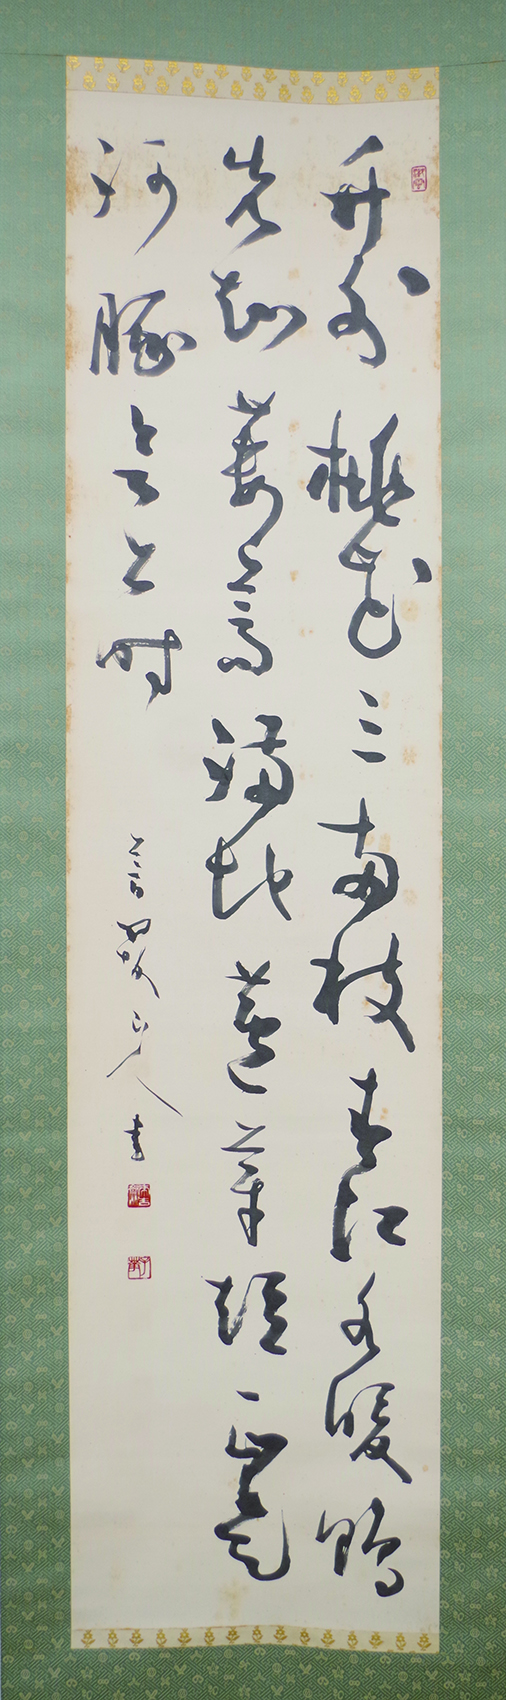 竹外桃花三两枝春江水暖鴨
先知蔞蒿満地蘆芽短正是
河豚欲上時
山人書